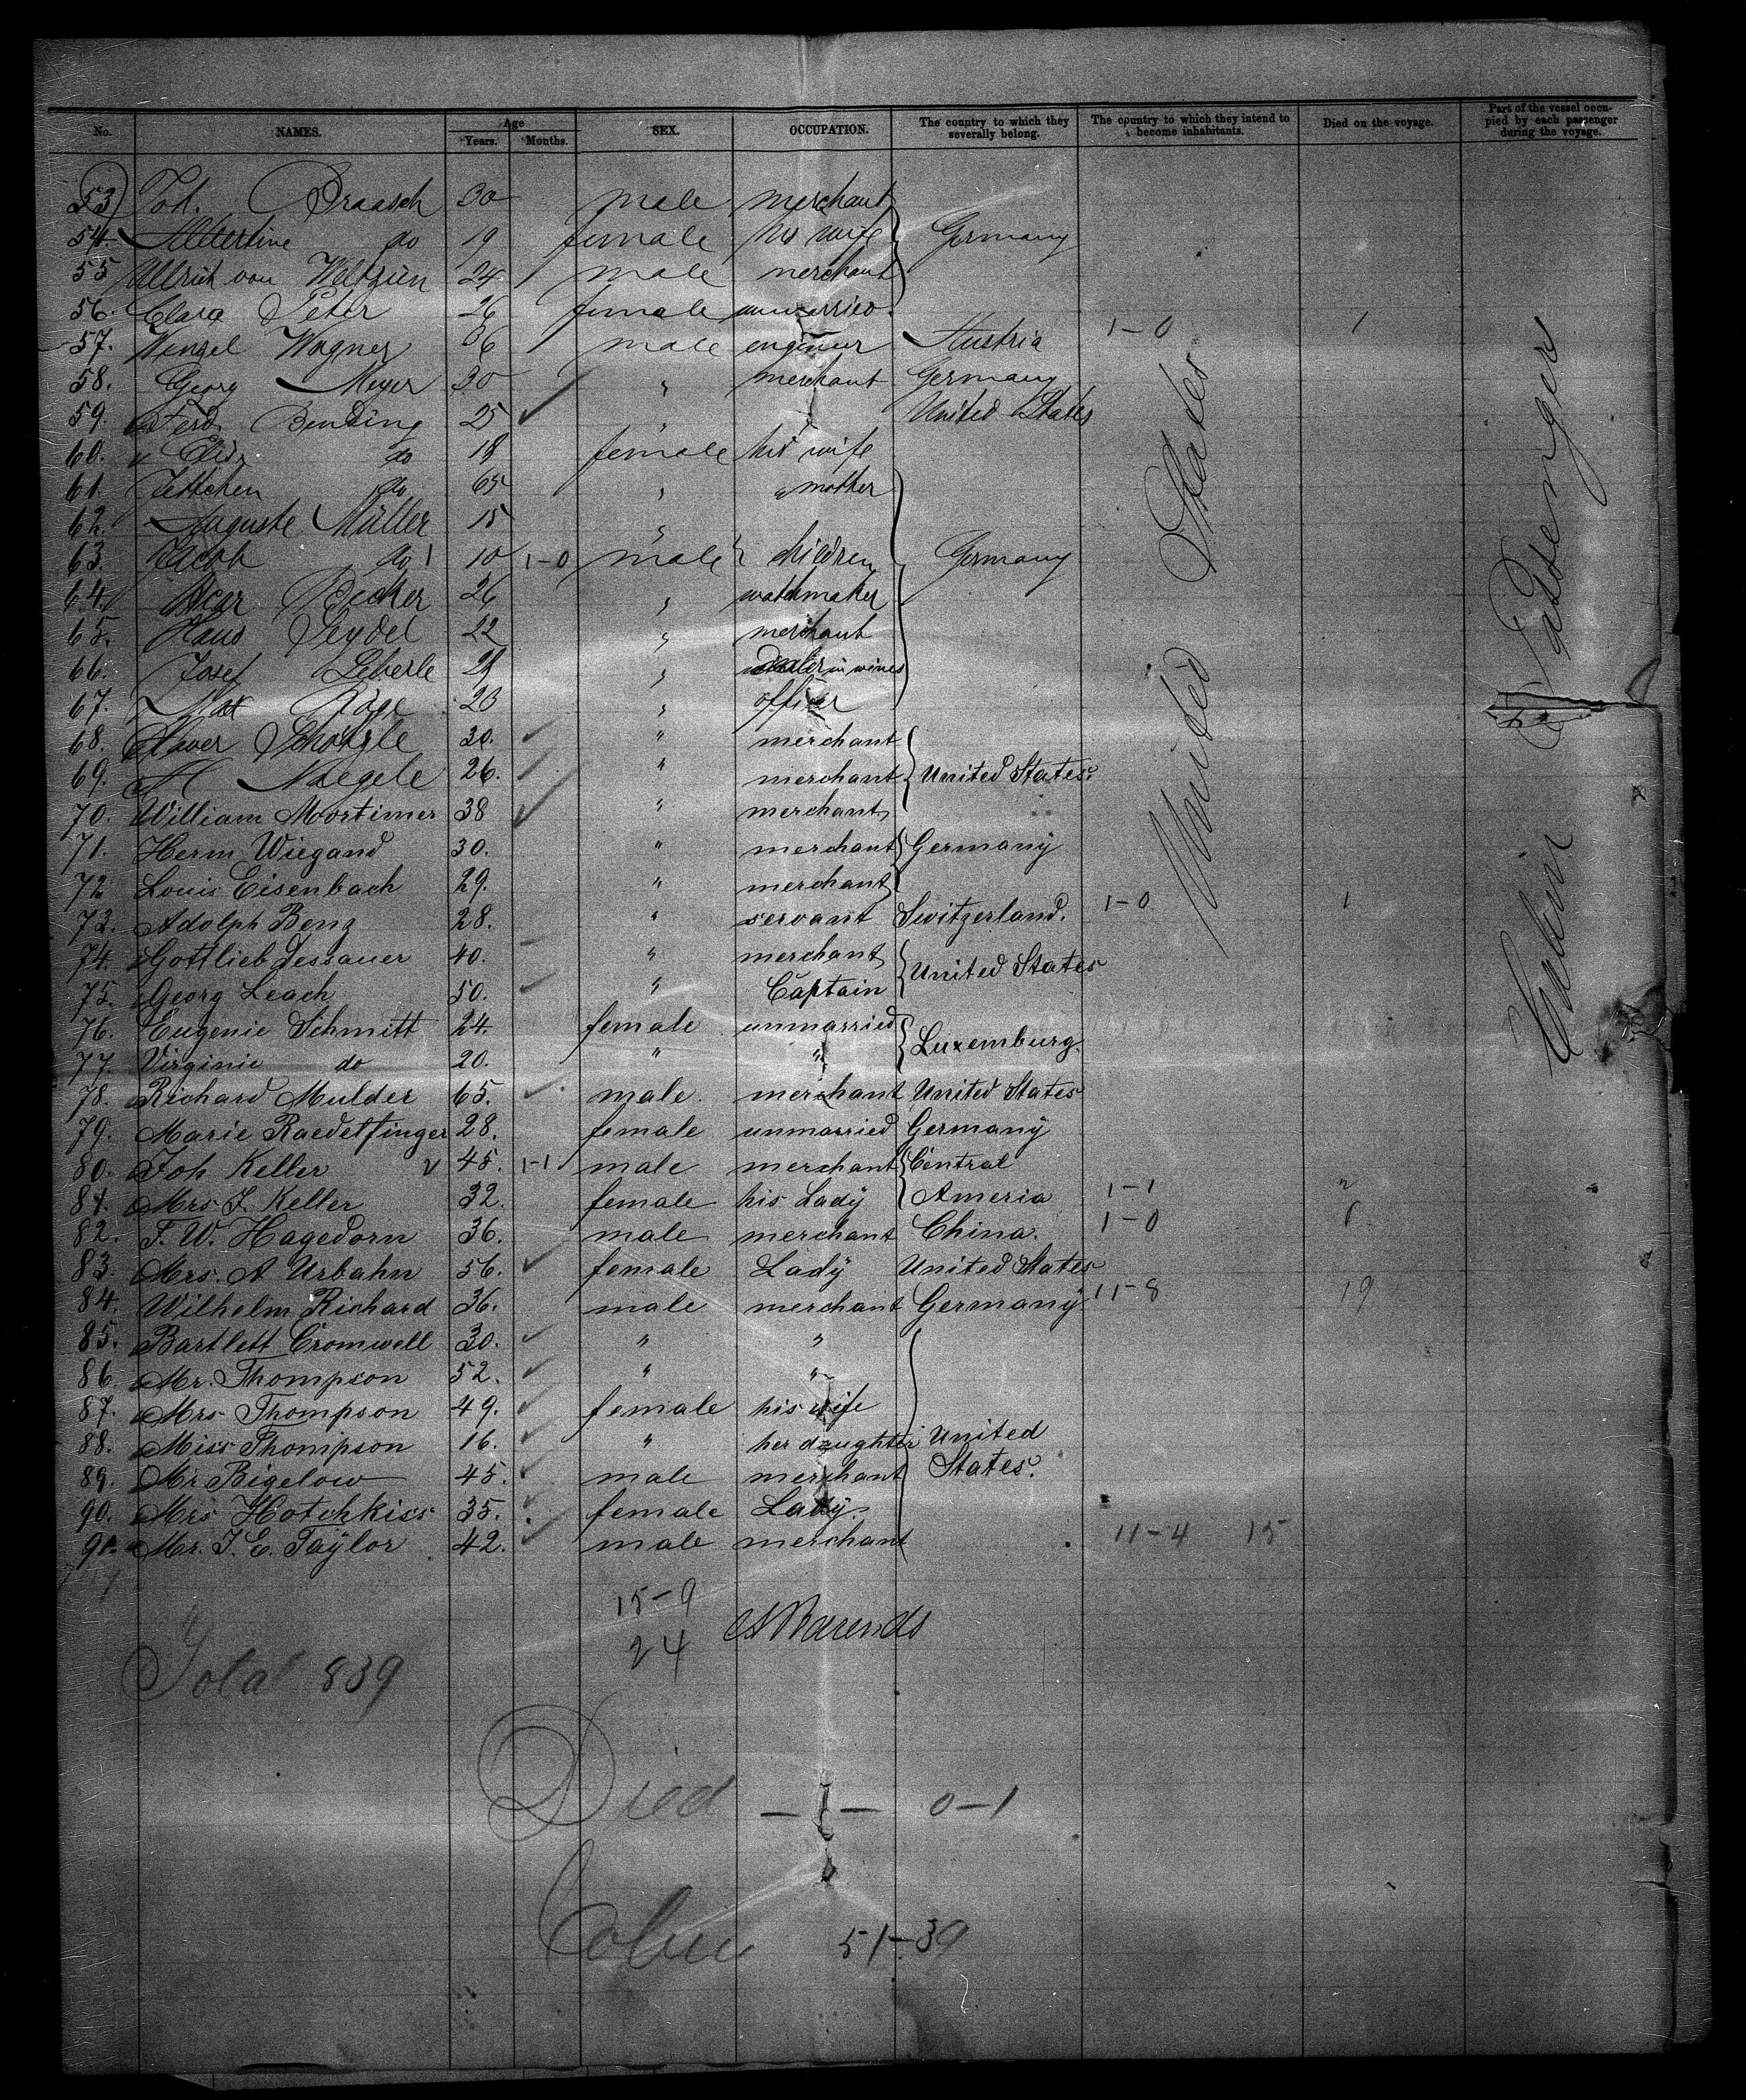 No. NAMES. Age Years. Months. SEX. OCCUPATION. The country to which they severally belong. The country to which they intend to become inhabitants. Died on the voyage. Part of the vessel occupied by each passenger during the voyage.
53) Joh. Braasch 30 male merchant
54. Albertine do 19 female his wife Germany
55 Ullrich von Weltzien 24 male merchant
56. Clara Peter 26 female unmarried
57. Wenzel Wagner 36 male engineer Austria 1-0 1
58. Georg Meyer 30 " merchant Germany
59. Ferd. Bending 25 " " United States
60. " Elisa do 18 female his wife
61. Jettchen do 65 " " mother
62. Auguste Müller 15 "
63. Jacob do 1 10 1-0 male children Germany
64. Becker 26 " watchmaker
65. Hans Seydel 22 " merchant
66. Josef Leberle 29 " dealer in wines
67. Max 23 " officer
68. Xaver Schözgle 30. " merchant
69. A Naegele 26. " merchant United States.
70. William Mortimer 38 " merchant
71. Herm Wiegand 30. " merchant Germany
72 Louis Eisenbach 29. " merchant
73. Adolph Benz 28. " servant Switzerland. 1-0 1
74. Gottlieb Dessauer 40. " merchant United States
75. Georg Leach 50. " Captain
76. Eugenie Schmitt 24. female unmarried Luxemburg.
77 Virginie do 20. " "
78. Richard Mulder 65. male. merchant United States
79. Marie Raedelfinger 28. female unmarried Germany
80. Joh Keller v 45. 1-1 male merchant Central
81. Mrs J. Keller 32. female his Lady Ameria 1-1 2
82. F. W. Hagedorn 36. male merchant China. 1-0 1
83. Mrs. A Urbahn 56. female Lady United States
84. Wilhelm Richard 36. male merchant Germany 11-8 19
85. Bartlett Cromwell 30. " "
86. Mr. Thompson 52. " "
87. Mrs Thompson 49. female his wife
88. Miss Thompson 16. " her daughter United
89. Mr Bigelow 45. male merchant States.
90. Mrs Hotchkiss 35. female Lady.
91. Mr. J. E. Taylor 42. male merchant 11-4 15
United States
Cabin Passenger
15-9
A Barends
24
Total 839
Died - 1 - 0-1
Cabin 51-39